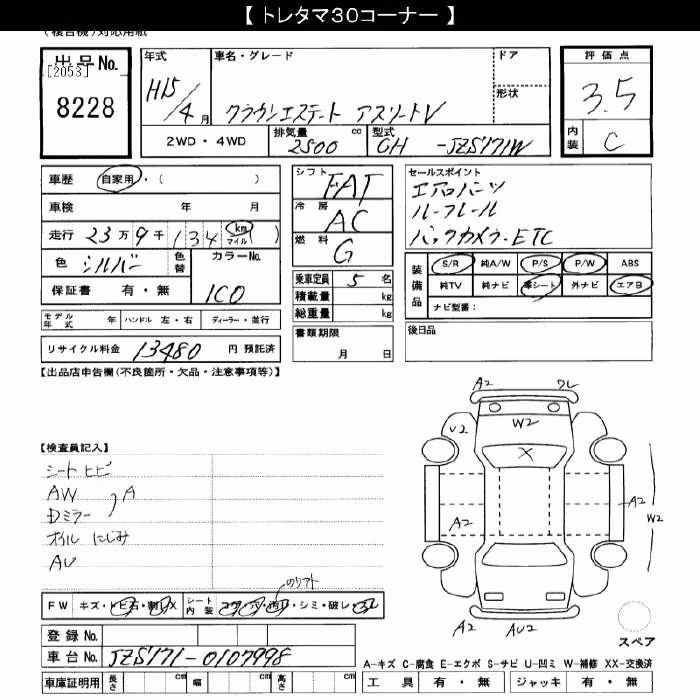 【 トレタマ30コーナー 】
(複合機)対応用紙
出品No.
[2053]
8228
年式
H15/4月
車名・グレード
クラウンエステート アスリートV
ドア
形状
2WD・4WD
排気量 2500 cc
型式 GH -JZS171W
評価点
3.5
内装 C
車歴 自家用・( )
車検 年 月
走行 23万9千(134)km マイル
色 シルバー 色替 カラーNo.
1C0
保証書 有・無
モデル年式 年 ハンドル 左・右 ディーラー・並行
リサイクル料金 13480 円 預託済
シフト FAT
冷房 AC
燃料 G
乗車定員 5 名
積載量 kg
総重量 kg
書類期限
月 日
セールスポイント
エアロパーツ
ルーフレール
バックカメラ・ETC
装備品
S/R 純A/W P/S P/W ABS
純TV 純ナビ 革シート 外ナビ エアB
ナビ型番:
後日品
【出品店申告欄(不良箇所・欠品・注意事項等)】
【検査員記入】
シート ヒビ
AW
Dミラー
A
オイル にじみ
AU
FW キズ・トビ石・割・X
シート内装 コゲ・穴・汚・シミ・破レ・スレ
のリフト
登録No.
車台No. JZS171-0107998
車庫証明用 長さ cm 幅 cm 高さ cm
A2
ワレ
U2
W2
X
A2
A2
W2
A2
AU2
スペア
A-キズ C-腐食 E-エクボ S-サビ U-凹ミ W-補修 XX-交換済
工具 有・無 ジャッキ 有・無